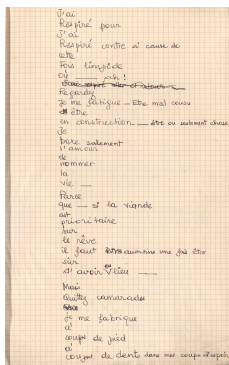 J'ai
Respiré pour
J'ai
Respiré contre à cause de
cette
Fois limpide
où ___ ah !
Regardez
Je me fatigue — Etre mal cousu
être
en construction — être ou seulement chose
Je
bave salement
l'amour
de
nommer
la
vie —
Parce
que — si la viande
est
prioritaire
sur
le rêve
il faut au moins une fois être
sûr
d'avoir eu lieu —
Mais
Quittez camarades
Je me fabrique
à
coups de pied
à
coups de dents dans mes coups d'esprit